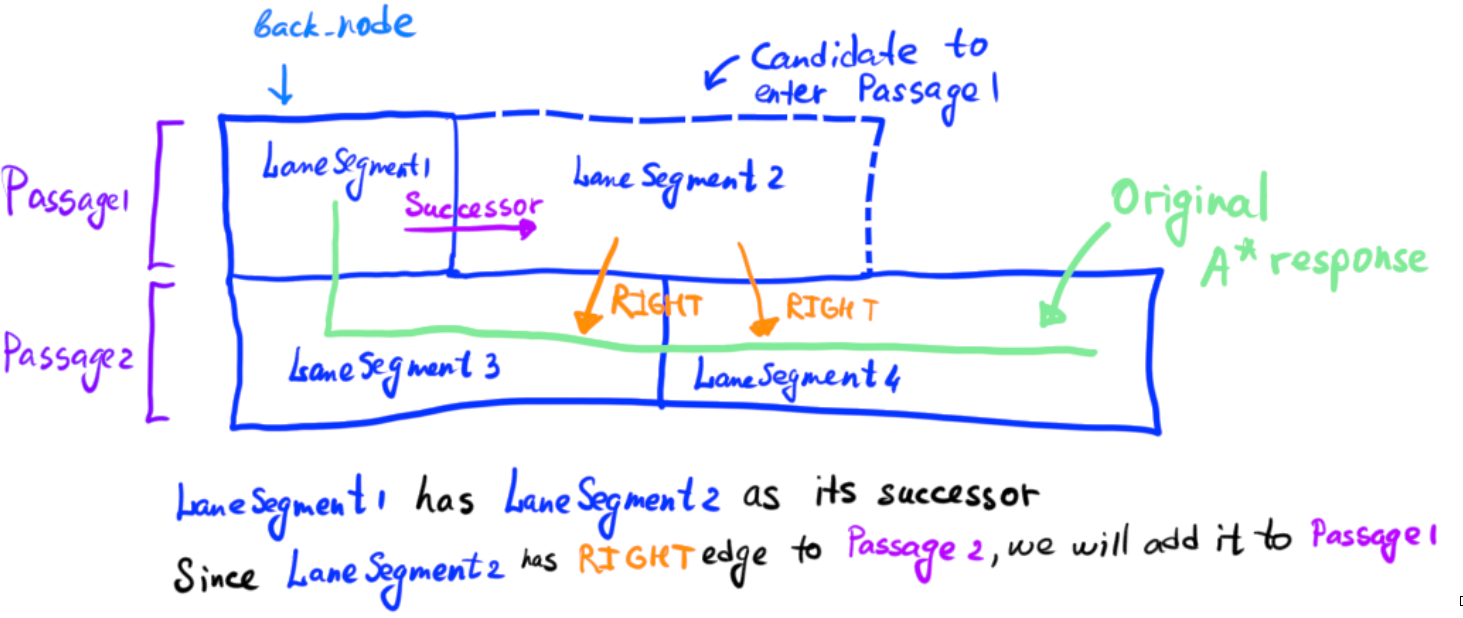 back_node
Candidate to
enter Passage1
LaneSegment1
Lane Segment 2
Passage1
Successor
Original
A* response
RIGHT
RIGHT
Passage2
LaneSegment 3
LaneSegment4
LaneSegment1 has LaneSegment2 as its successor
Since LaneSegment2 has RIGHT edge to Passage 2, we will add it to Passage1